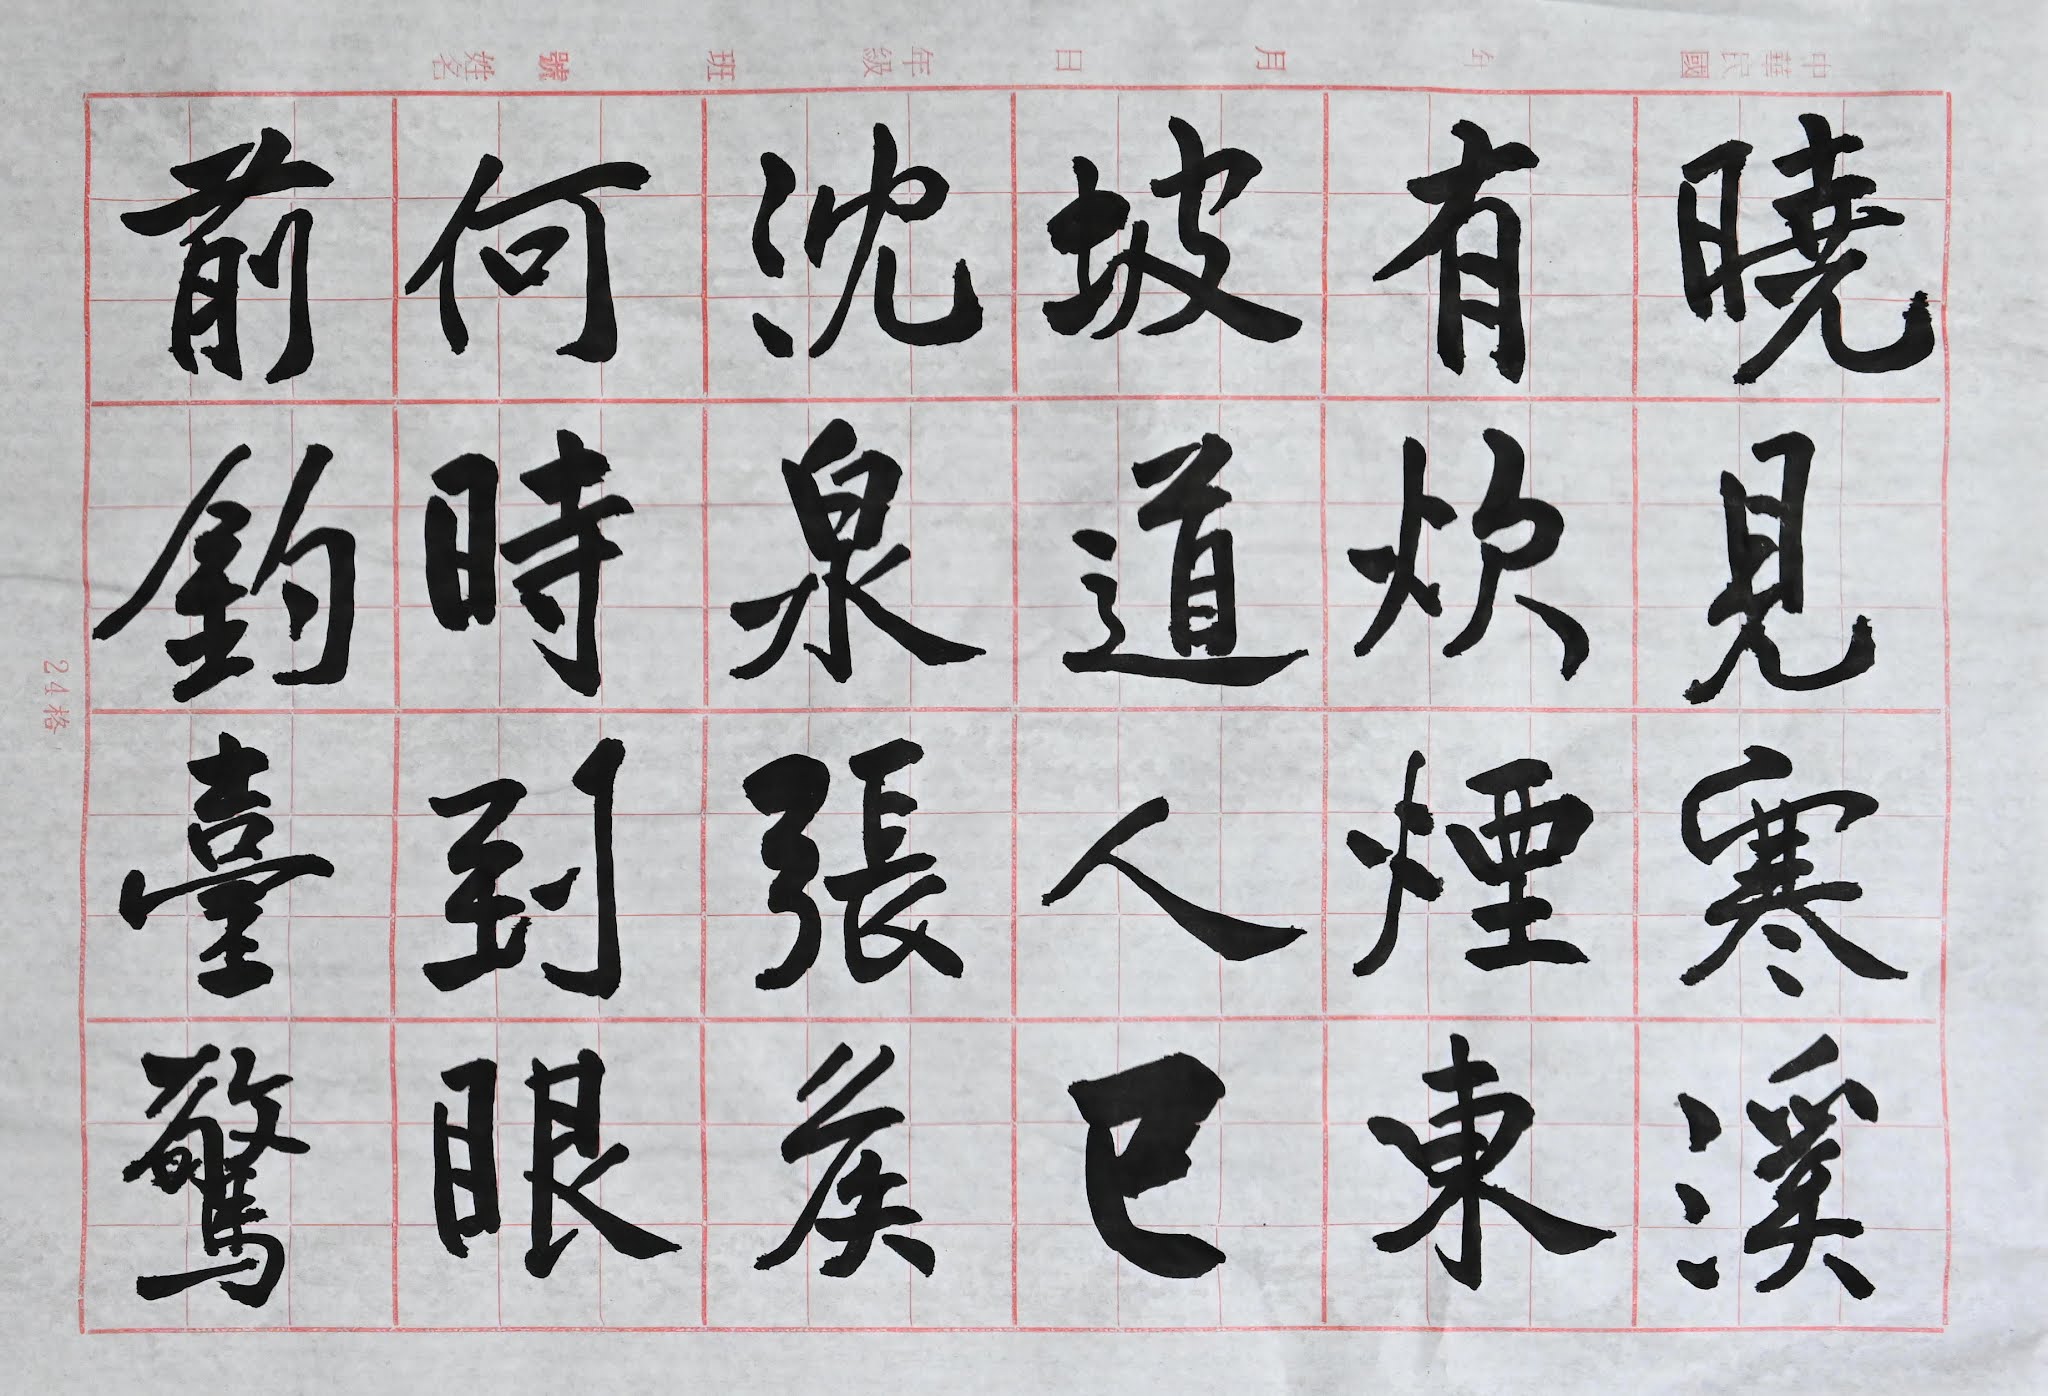 中華民國 年 月 日 年級 班 號 姓名
曉見寒溪
有炊煙東
坡道人已
沈泉張侯
何時到眼
前釣臺驚
24格